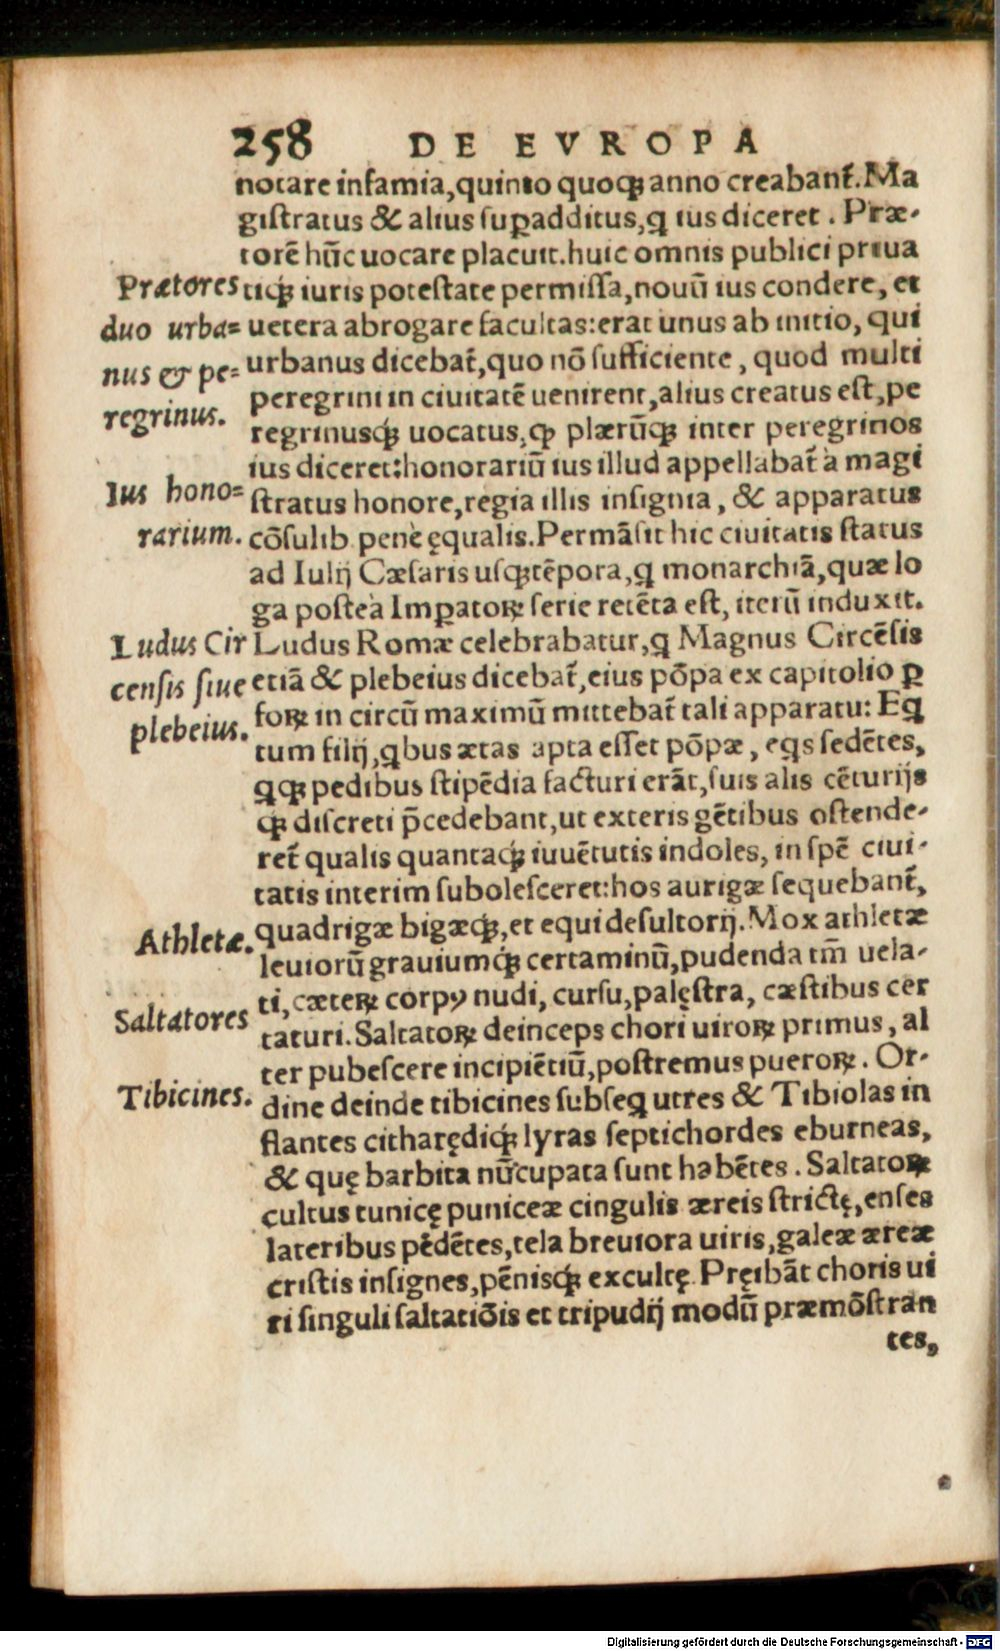 258 DE EVROPA
notare infamia, quinto quoqꝫ anno creabant᷑. Ma
giſtratus & alius ſuꝑadditus, ꝗ ius diceret. Præ-
torẽ hũc uocare placuit. huic omnis publici priua
tiqꝫ iuris poteſtate permiſſa, nouũ ius condere, et
uetera abrogare facultas: erat unus ab initio, qui
urbanus dicebat᷑, quo nõ ſufficiente, quod multi
peregrini in ciuitatẽ uenirent, alius creatus eſt, pe
regrinusqꝫ uocatus, ꝙ plærũqꝫ inter peregrinos
ius diceret: honorariũ ius illud appellabat᷑ à magi
ſtratus honore, regia illis inſignia, & apparatus
cõſulib penè ęqualis. Permãſit hic ciuitatis ſtatus
ad Iulij Cæſaris uſqꝫ tẽpora, ꝗ monarchiã, quæ lo
ga poſteà Imꝑatoꝝ ſerie retẽta eſt, iterũ induxit.
Ludus Romæ celebrabatur, ꝗ Magnus Circẽſis
etiã & plebeius dicebat᷑, eius põpa ex capitolio ꝑ
foꝝ in circũ maximũ mittebat᷑ tali apparatu: Eꝗ
tum filij, ꝗbus ætas apta eſſet põpæ, eꝗs ſedẽtes,
ꝗqꝫ pedibus ſtipẽdia facturi erãt, ſuis alis cẽturijs
qꝫ diſcreti p̃cedebant, ut exteris gẽtibus oſtende-
ret᷑ qualis quantaqꝫ iuuẽtutis indoles, in ſpẽ ciui-
tatis interim ſuboleſceret: hos aurigæ ſequebant᷑,
quadrigæ bigæqꝫ, et equi deſultorij. Mox athletæ
leuiorũ grauiumqꝫ certaminũ, pudenda tm̃ uela-
ti, cæteꝝ corpꝰ nudi, curſu, palęſtra, cæſtibus cer
taturi. Saltatoꝝ deinceps chori uiroꝝ primus, al
ter pubeſcere incipiẽtiũ, poſtremus pueroꝝ. Or-
dine deinde tibicines ſubſeꝗ utres & Tibiolas in
flantes citharędiqꝫ lyras ſeptichordes eburneas,
& quę barbita nũcupata ſunt habẽtes. Saltatoꝝ
cultus tunicę puniceæ cingulis æreis ſtrictę, enſes
lateribus pẽdẽtes, tela breuiora uiris, galeæ æreæ
criſtis inſignes, pẽnisqꝫ excultę. Pręibãt choris ui
ri ſinguli ſaltatiõis et tripudij modũ præmõſtran
tes,
Prætores
duo urba=
nus & pe=
regrinus.
Ius hono=
rarium.
Ludus Cir
cenſis ſiue
plebeius.
Athletæ.
Saltatores
Tibicines.
Digitalisierung gefördert durch die Deutsche Forschungsgemeinschaft - DFG